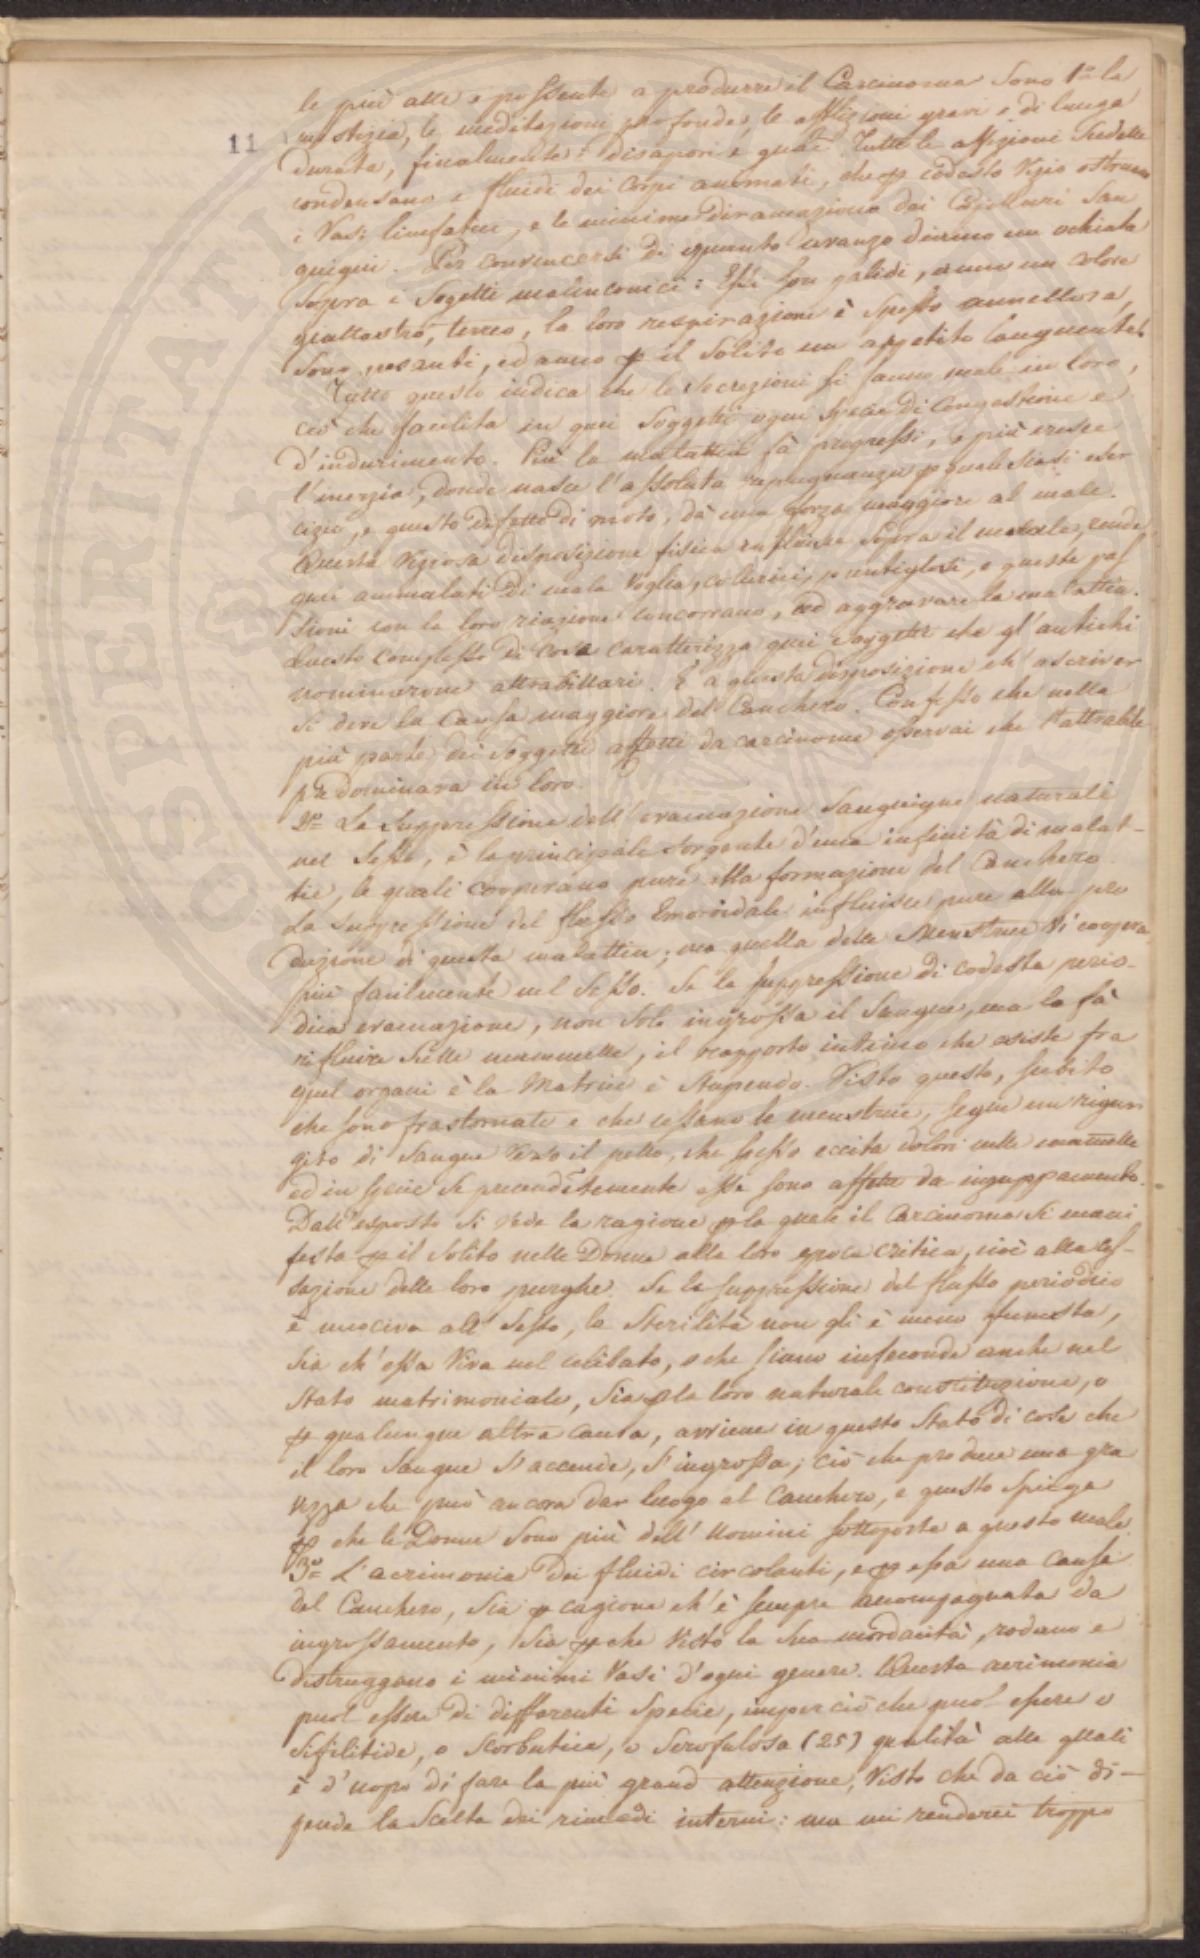 le più atte e possente a produrre il Carcinoma sono 1º la
mestizia, le meditazioni profonde, le afflizioni gravi e di lunga
11
durata, finalmente i disapori e guai. Tutte le affezioni sudette
condensano e fluidi dei Corpi animati, che p codesto Vizio ottturano
i Vasi linfatici, e le minime diramazione dei Capillari San
guigni. Per convincersi di quanto avanzo diremo un ochiata
sopra i Sogetti malinconici: Essi son palidi, anno un colore
giallastro, terreo, la loro respirazione è spesso annellosa,
sono pesanti, ed anno p il solito un appetito languente.
Tutto questo indica che le secrezioni si fanno male in loro,
ciò che facilita in quei soggetti ogni specie di Congestione e
d'indurimento. Più la malattia fà progressi, e più cresce
l'inerzia, donde nasce l'assoluta repugnanza p qualesiasi eser
cizio, e questo difetto di moto, dà una forza maggiore al male.
Questa Viziosa disposizione fisica influisce sopra il morale, rende
quei ammalati di mala Voglia, collerici, puntigliosi, e queste pas
sioni con la loro riazione concorrano, ad aggravare la malattia.
Questo complesso di cosa caratterizza quei soggetti che gl'antichi
nominarono attrabillari. E a questa disposizione ch' ascriver
si deve la Causa maggiore del Canchero. Confesso che nella
più parte dei Soggetti affetti da carcinoma osservai che l'attrabile
pre Dominava in loro.
2º La Suppressione dell'evacuazione Sanguigne naturali
nel Sesso, è la principale Sorgente d'una infinità di malat-
tie, le quali Cooperano pure alla formazione del Canchero.
La Suppressione del flusso Emoroidale influisce pure alla pro
duzione di questa malattia; ma quella delle Menstrue Vi coopera
più facilmente nel Sesso. Se la suppressione di codesta perio-
dica evacuazione, non solo ingrossa il Sangue, ma lo fà
rifluire sulle mammelle, il rapporto intimo che esiste fra
quel organi è la Matrice è stupendo. Visto questo, subito
che sono frastornate e che cessano le menstrue, segue un rigur
gito di Sangue Verso il petto, che spesso eccita dolori nelle mammelle
ed in specie se precendetemente esse sono affette da inzuppamento.
Dall'esposto si vede la ragione p la quale il Carcinoma si mani
festa p il Solito nelle Donne alla loro epoca critica, cioè alla ces-
sazione delle loro purghe. Se la suppressione del flusso periodico
è nuociva all' Sesso, la Sterilità non gli è meno funesta,
sia ch'essa Viva nel celibato, o che siano infeconde anche nel
stato matrimoniale, Sia p la loro naturale constituzione, o
p qualunque altra causa, avviene in questo Stato di cose che
il loro Sangue s'accende, s'ingrossa; ciò che produce una gra
vezza che può ancora dar luogo al Canchero, e questo spiega
p che le Donne sono più dell' Uomini sottoposte a questo male.
3º L'acrimonia dei fluidi circolanti, e p essa una Causa
del Canchero, sia p cagione ch'è sempre accompagnata da
ingrossamento, sia p che Visto la sua mordacità, rodano e
distruggano i minimi Vasi d'ogni genere. Questa acrimonia
puol essere di differenti Specie, imperciò che puol essere o
Sifilitide, o Scorbutica, o Scrofulosa (25) qualità alle quali
è d'uopo di fare la più grand attenzione, Visto che da ciò di-
pende la Scelta dei rimedi interni: ma mi renderei troppo